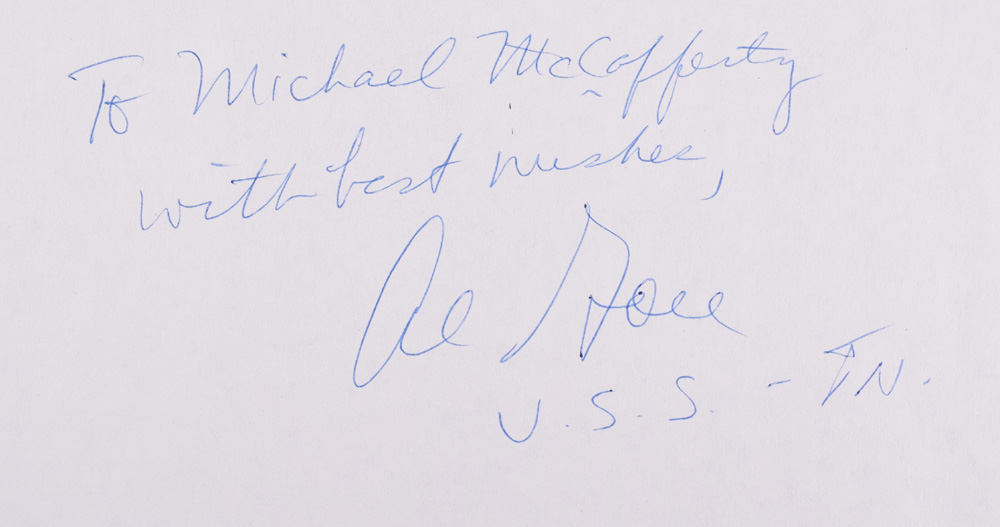 To Michael McCafferty
with best wishes,
Al Gore
U.S.S. - TN.